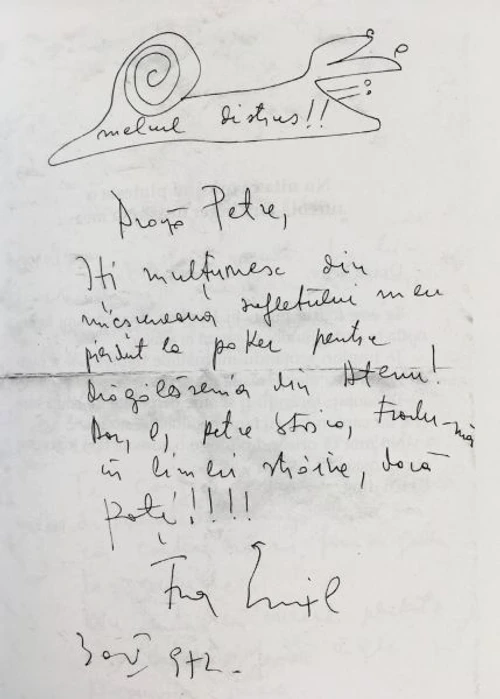 melcul distrus!!
Dragă Petre,
Iți mulțumesc din
sufletului meu
pierdut la poker pentru
drăgălășenia din Ateneu!
Dar, o, Petre Stoica, tradu-mă
în limbi străine, dacă
poți!!!!!
972.